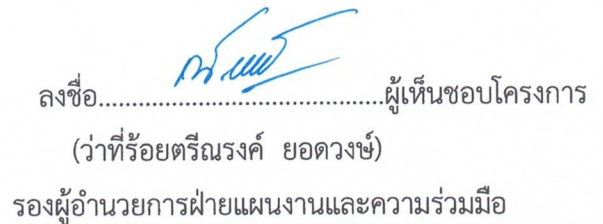 ลงชื่อ........................................ผู้เห็นชอบโครงการ
(ว่าที่ร้อยตรีณรงค์ ยอดวงษ์)
รองผู้อำนวยการฝ่ายแผนงานและความร่วมมือ